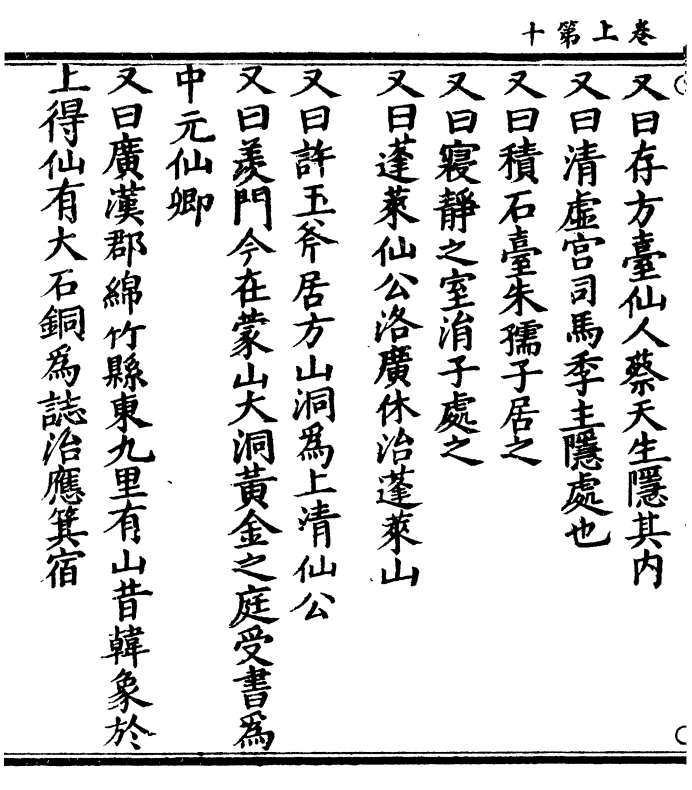 卷上第十
又曰存方臺仙人蔡天生隱其内
又曰清虛宫司馬季主隱處也
又曰積石臺朱孺子居之
又曰寢靜之室涓子處之
又曰蓬萊仙公洛廣休治蓬萊山
又曰許玉斧居方山洞爲上清仙公
又曰羨門今在蒙山大洞黃金之庭受書爲
中元仙卿
又曰廣漢郡綿竹縣東九里有山昔韓象於
上得仙有大石銅爲誌治應箕宿